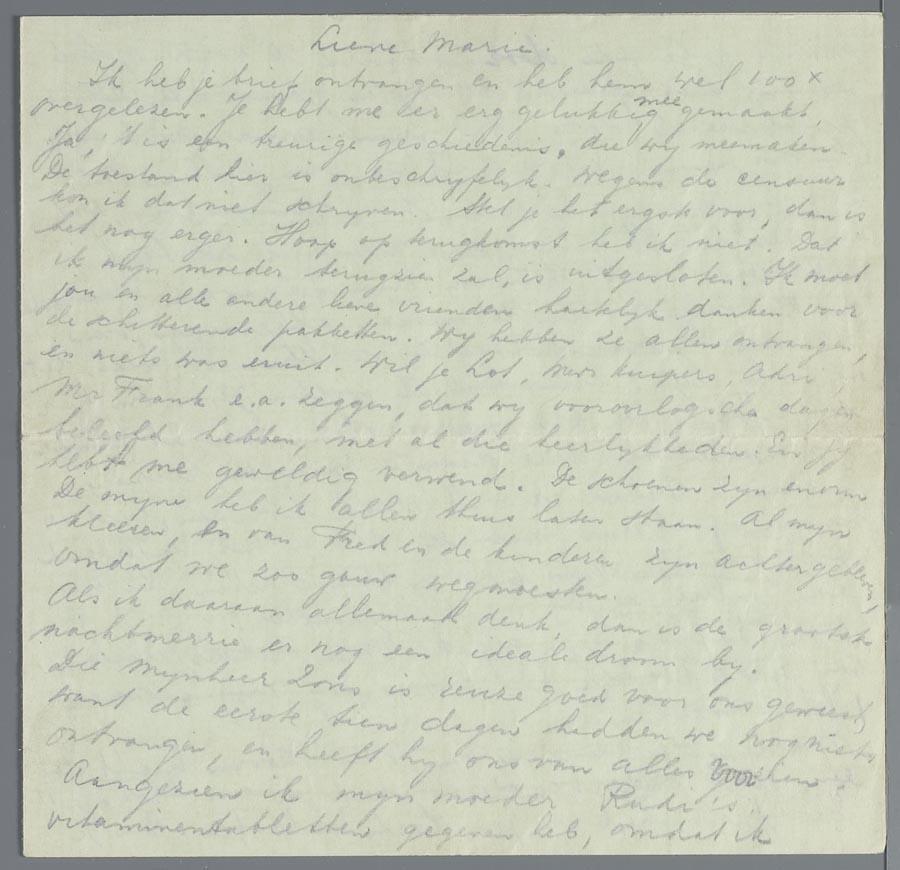 Lieve Marie.
Ik heb je brief ontvangen en heb hem wel 100 x
overgelezen. Je hebt me zer erg gelukkig mee gemaakt.
Ja, 't is een treurige geschiedenis, die wy meemaken.
De toestand hier is onbeschryfelyk. Wegens de censuur
kon ik dat niet schryven. Stel je het ergste voor, dan is
het nog erger. Hoop op terugkomst heb ik niet. Dat
ik myn moeder terugzien zal, is uitgesloten. Ik moet
jou en alle andere lieve vrienden hartelyk danken voor
de schitterende paketten. Wy hebben ze allen ontvangen,
en niets was eruit. Wil je Lot, Mevr Kuipers, Adri
Mr Frank e.a. zeggen, dat wy vooroorlogsche dagen
beleefd hebben, met al die heerlykheden. En jy
hebt me geweldig verwend. De schoenen zyn enorm
De myne heb ik allen thuis laten staan. Al myn
kleeren, en van Fred en de kinderen zyn achtergebleven,
omdat we zoo gauw wegmoesten.
Als ik daaraan allemaal denk, dan is de grootste
nachtmerrie er nog een ideale droom by.
Die Mynheer Zons is reuze goed voor ons geweest,
want de eerste tien dagen hadden we nog niets
ontvangen, en heeft hy ons van alles voorzien.
Aangezien ik myn moeder Rudi's
vitaminentabletten gegeven heb, omdat ik